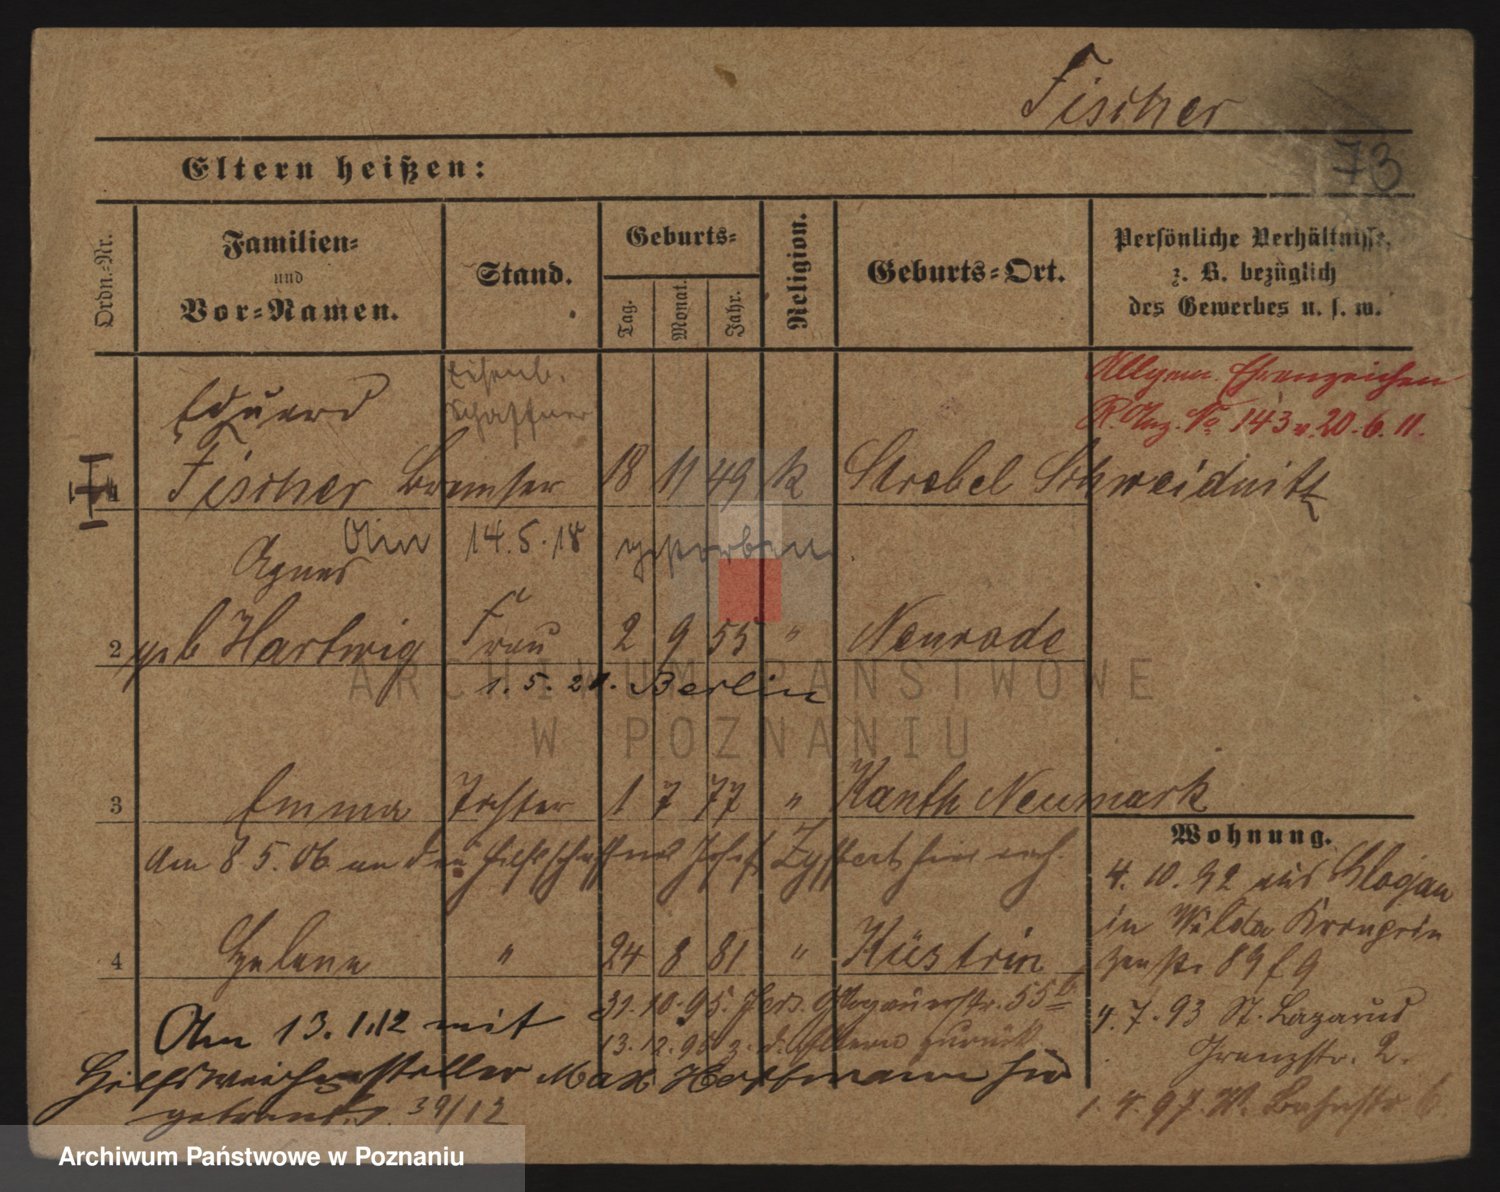 Fischer
73
Eltern heißen:
Ordn.-Nr.
Familien-
und
Vor-Namen.
Stand.
Geburts-
Tag.
Monat.
Jahr.
Religion.
Geburts-Ort.
Persönliche Verhältnisse,
z. B. bezüglich
des Gewerbes u. s. w.
Eisenb.
Schaffner
Allgem. Ehrenzeichen
R. Anz. No 143 v. 20.6.11.
Eduard
1 Fischer Bremser 18 11 49 k Strebel Schweidnitz
Am 14.5.18 gestorben
Agnes
2 geb Hartwig Frau 2 9 55 " Neurode
1.5.20. Berlin
3 Emma Tochter 1 7 77 " Kanth Neumark
Am 8.5.06 an den Hilfsschaffner Josef hier verh.
4 Helene " 24 8 81 " Küstrin
31.10.95. Glogauerstr. 55b
13.12.95 z. d. Eltern zurück
Am 13.1.12 mit
Hilfsweichensteller Max Hoffmann hier
getraut. 39/12
Wohnung.
4.10.92 aus Glogau
in Wilda Kronprin
zenstr. 89 f 9
4.7.93 St. Lazarus
Grenzstr. 2.
1.4.97. W. Bahnstr 6
ARCHIWUM PAŃSTWOWE
W POZNANIU
Archiwum Państwowe w Poznaniu